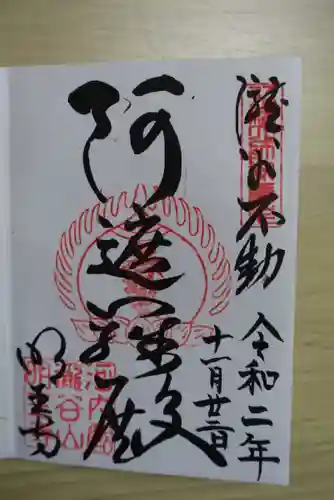 瀧谷不動
令和二年
十一月廿二日
阿遮羅殿
明王寺
河内國
瀧谷山
明王寺